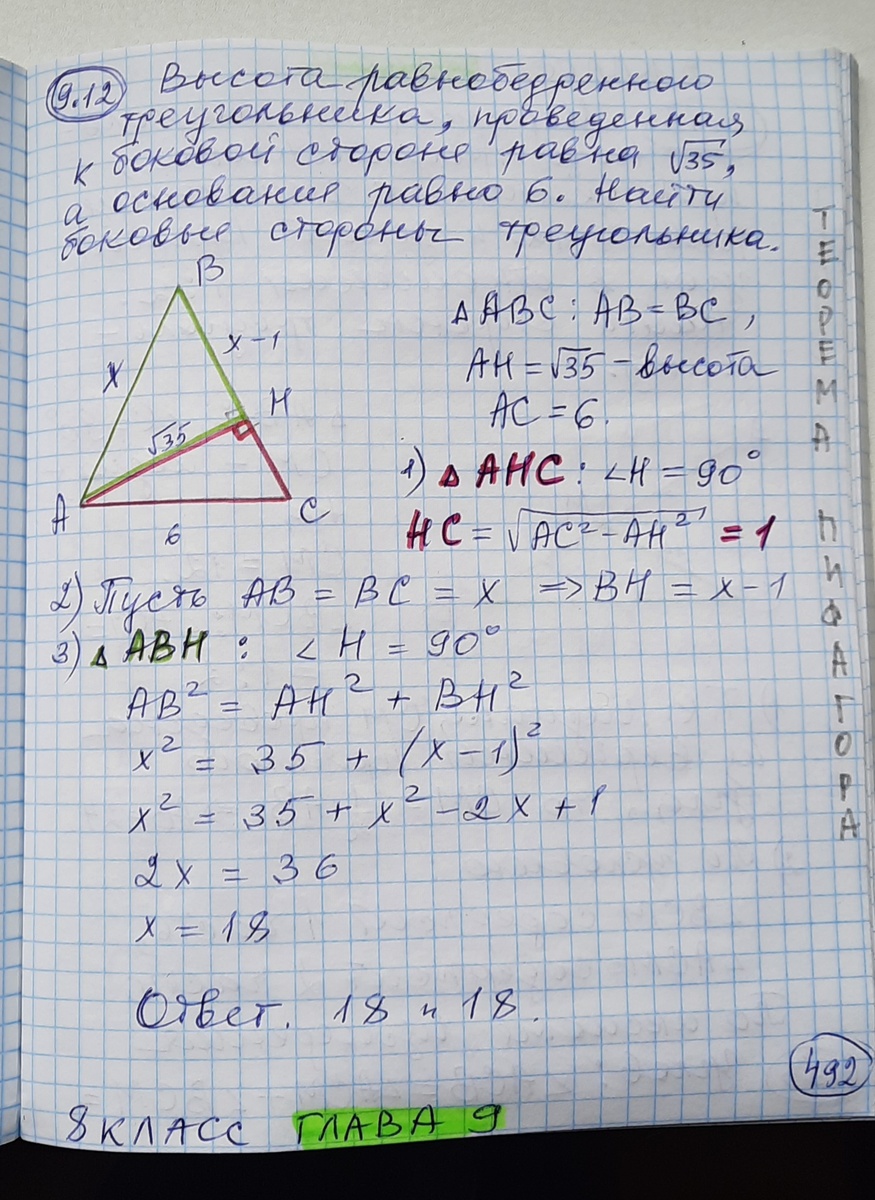 9.12 Высота равнобедренного
треугольника, проведенная
к боковой стороне равна √35,
а основание равно 6. Найти
боковые стороны треугольника.
B
x
x-1
H
√35
A
C
6
Δ ABC : AB = BC ,
AH = √35 - высота
AC = 6.
1) Δ AHC : ∠H = 90°
HC = √AC² - AH² = 1
2) Пусть AB = BC = x => BH = x - 1
3) Δ ABH : ∠ H = 90°
AB² = AH² + BH²
x² = 35 + (x - 1)²
x² = 35 + x² - 2x + 1
2x = 36
x = 18
Ответ. 18 и 18.
ТЕОРЕМА ПИФАГОРА
492
8 КЛАСС ГЛАВА 9